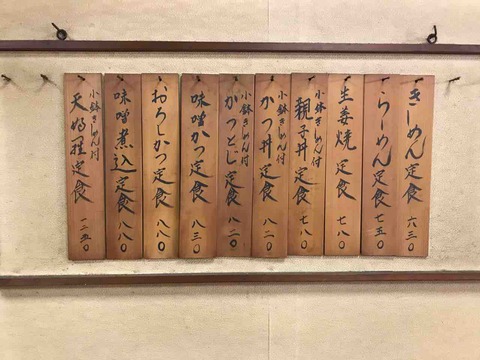 きしめん定食 六三〇
らーめん定食 七五〇
生姜焼定食 七八〇
小鉢きしめん付
親子丼定食 七八〇
小鉢きしめん付
かつ丼定食 八二〇
小鉢きしめん付
かつとじ定食 八二〇
味噌かつ定食 八三〇
おろしかつ定食 八八〇
味噌煮込定食 八八〇
小鉢きしめん付
天婦羅定食 一二五〇